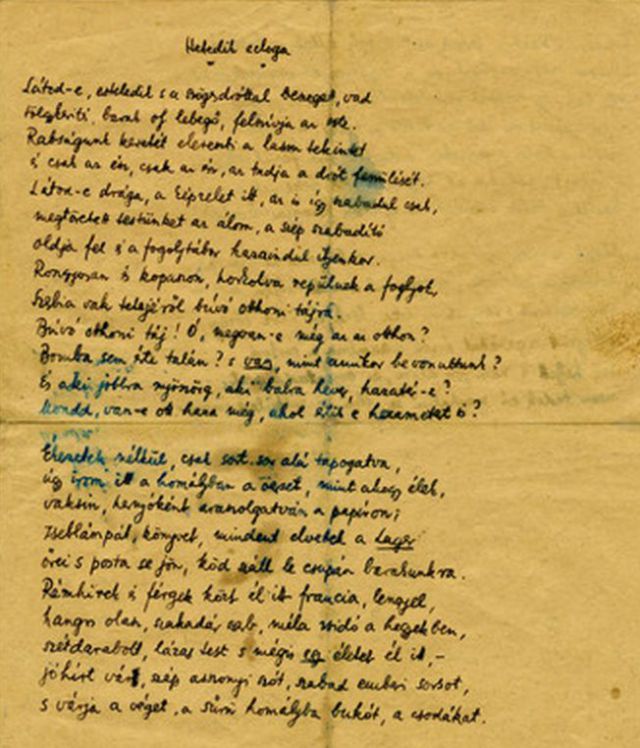 Hetedik ecloga
Látod-e, esteledik s a szögesdróttal beszegett, vad
tölgykerités, barak oly lebegő, felszívja az este.
Rabságunk keretét elereszti a lassu tekintet
és csak az ész, csak az ész, az tudja a drót feszülését.
Látod-e drága, a képzelet itt, az is így szabadul csak,
megtöretett testünket az álom, a szép szabadító
oldja fel s a fogolytábor hazaindul ilyenkor.
Rongyosan és kopaszon, horkolva repülnek a foglyok,
Szerbia vak tetejéről búvó otthoni tájra.
Búvó otthoni táj! Ó, megvan-e még az az otthon?
Bomba sem érte talán? s van, mint amikor bevonultunk?
És aki jobbra nyöszörg, aki balra hever, hazatér-e?
Mondd, van-e ott haza még, ahol értik e hexametert is?
Ékezetek nélkül, csak sort sor alá tapogatva,
úgy irom itt a homályban a verset, mint ahogy élek,
vaksin, hernyóként araszolgatván a papíron;
zseblámpát, könyvet, mindent elvettek a Lager
őrei s posta se jön, köd száll le csupán barakunkra.
Rémhirek és férgek közt él itt francia, lengyel,
hangos olasz, szakadár szerb, méla zsidó a hegyekben,
szétdarabolt, lázas test s mégis egy életet él itt, –
jóhírt vár, szép asszonyi szót, szabad emberi sorsot,
s várja a véget, a sűrü homályba bukót, a csodákat.